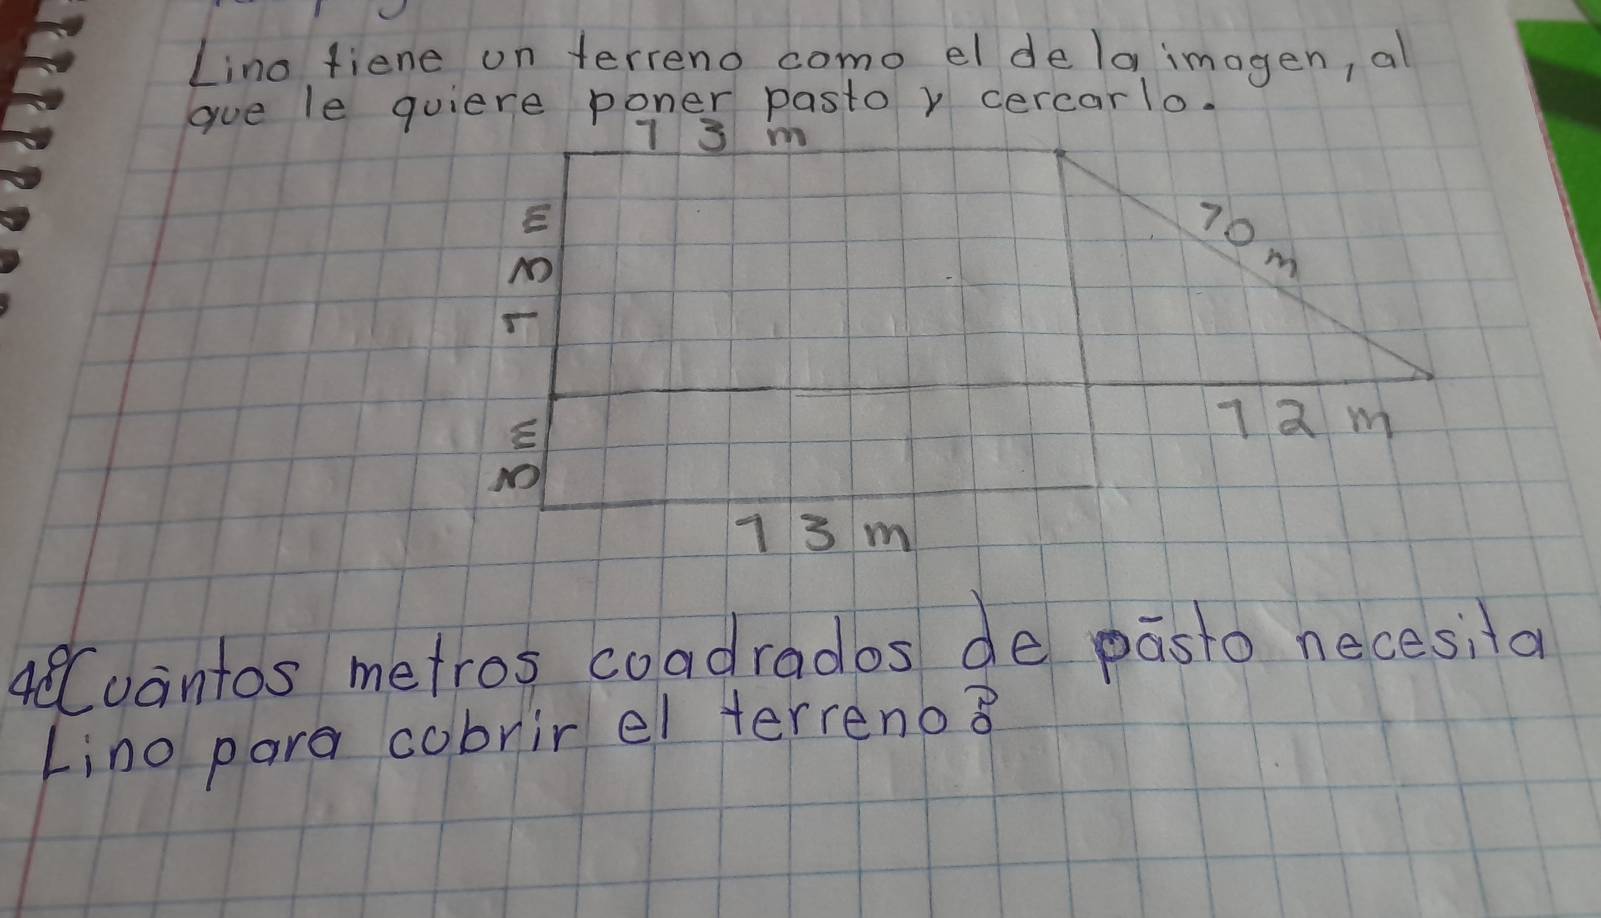 Lino tiene un terreno como el de la imagen, al
que le quiere poner pasto y cercarlo.
13 m
13 m
10 m
3 m
12 m
13 m
¿Cuántos metros cuadrados de pasto necesita
Lino para cubrir el terreno?